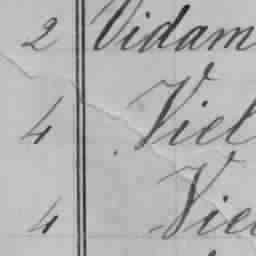 2 Vidam
4 Viel
4 Vie